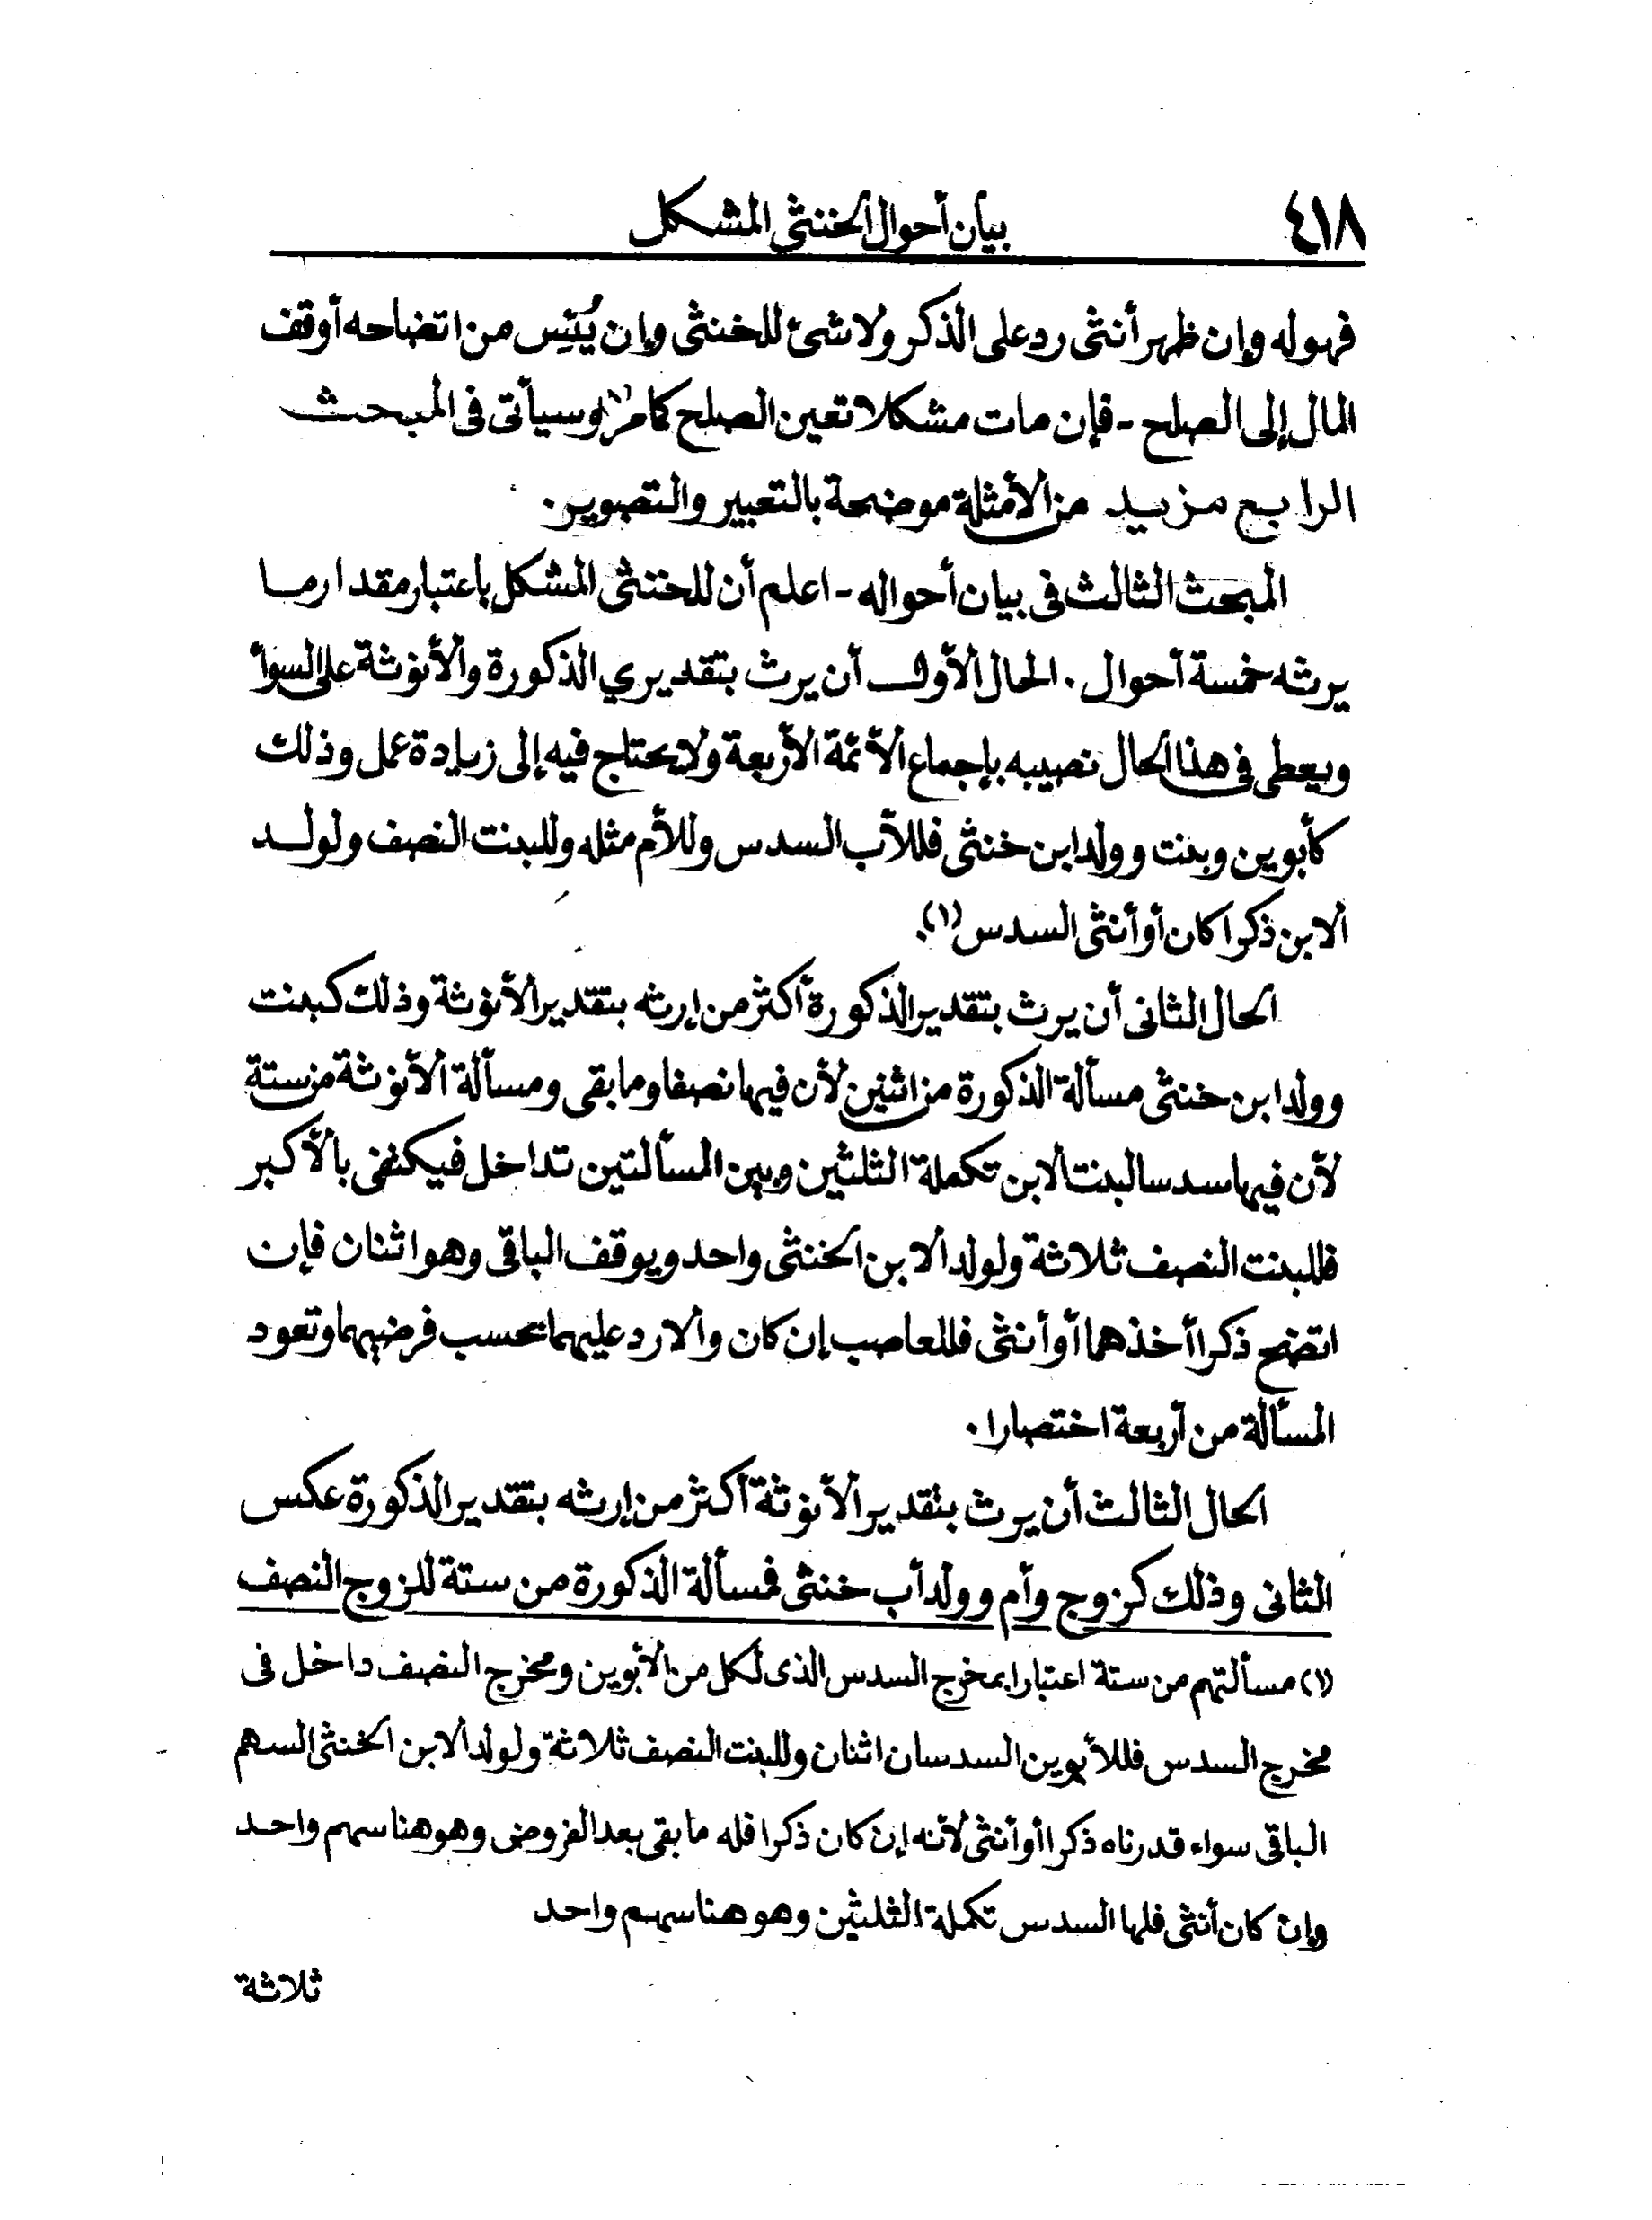 ٤١٨ بيان أحوال الخنثى المشكل
فهو له وإن ظهر أنثى رد على الذكر ولا شئ للخنثى وإن يُئِس من اتضاحه أوقف
المال إلى الصلح - فإن مات مشكلا تعين الصلح كما مر وسيأتى فى المبحث
الرابع مزيد من الأمثلة موضحة بالتعبير والتصوير.
المبحث الثالث فى بيان أحواله - اعلم أن للخنثى المشكل باعتبار مقدار ما
يرثه خمسة أحوال . الحال الأول أن يرث بتقديري الذكورة والأنوثة على السوأ
ويعطى فى هذا الحال نصيبه بإجماع الأئمة الأربعة ولا يحتاج فيه إلى زيادة عمل وذلك
كأبوين وبنت وولد ابن خنثى فللأب السدس وللأم مثله وللبنت النصف ولولد
الابن ذكرا كان أو أنثى السدس (١).
الحال الثانى أن يرث بتقدير الذكورة أكثر من إرثه بتقدير الأنوثة وذلك كبنت
وولد ابن خنثى مسألة الذكورة من اثنين لأن فيها نصفا وما بقى ومسألة الأنوثة من ستة
لأن فيها سدسا لبنت الابن تكملة الثلثين وبين المسألتين تداخل فيكتفى بالأكبر
فللبنت النصف ثلاثة ولولد الابن الخنثى واحد ويوقف الباقى وهو اثنان فإن
اتضح ذكرا أخذهما أو أنثى فللعاصب إن كان والا رد عليهما بحسب فرضيهما وتعود
المسألة من أربعة اختصارا.
الحال الثالث أن يرث بتقدير الأنوثة أكثر من إرثه بتقدير الذكورة عكس
الثانى وذلك كزوج وأم وولد أب خنثى فمسألة الذكورة من ستة للزوج النصف
(١) مسألتهم من ستة اعتبارا بمخرج السدس الذى لكل من الأبوين ومخرج النصف داخل فى
مخرج السدس فللأبوين السدسان اثنان وللبنت النصف ثلاثة ولولد الابن الخنثى السهم
الباقى سواء قدرناه ذكرا أو أنثى لأنه إن كان ذكرا فله ما بقى بعد الفروض وهو هنا سهم واحد
وإن كان أنثى فلها السدس تكملة الثلثين وهو هنا سهم واحد
ثلاثة